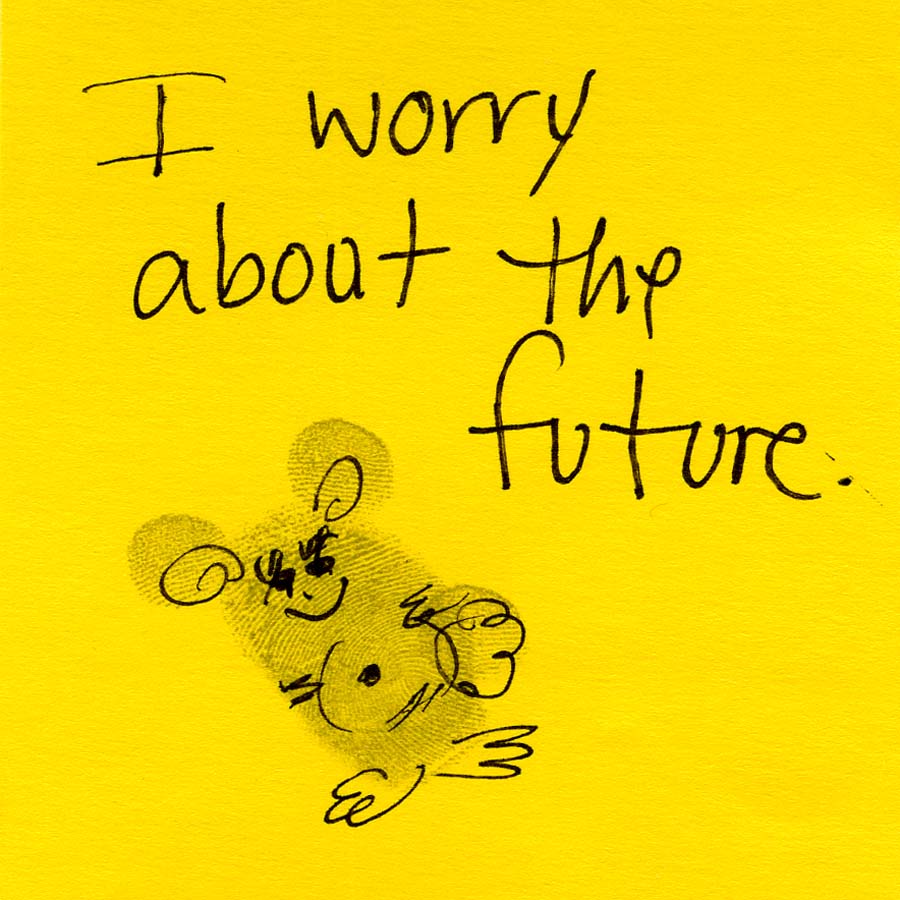 I worry
about the
future.